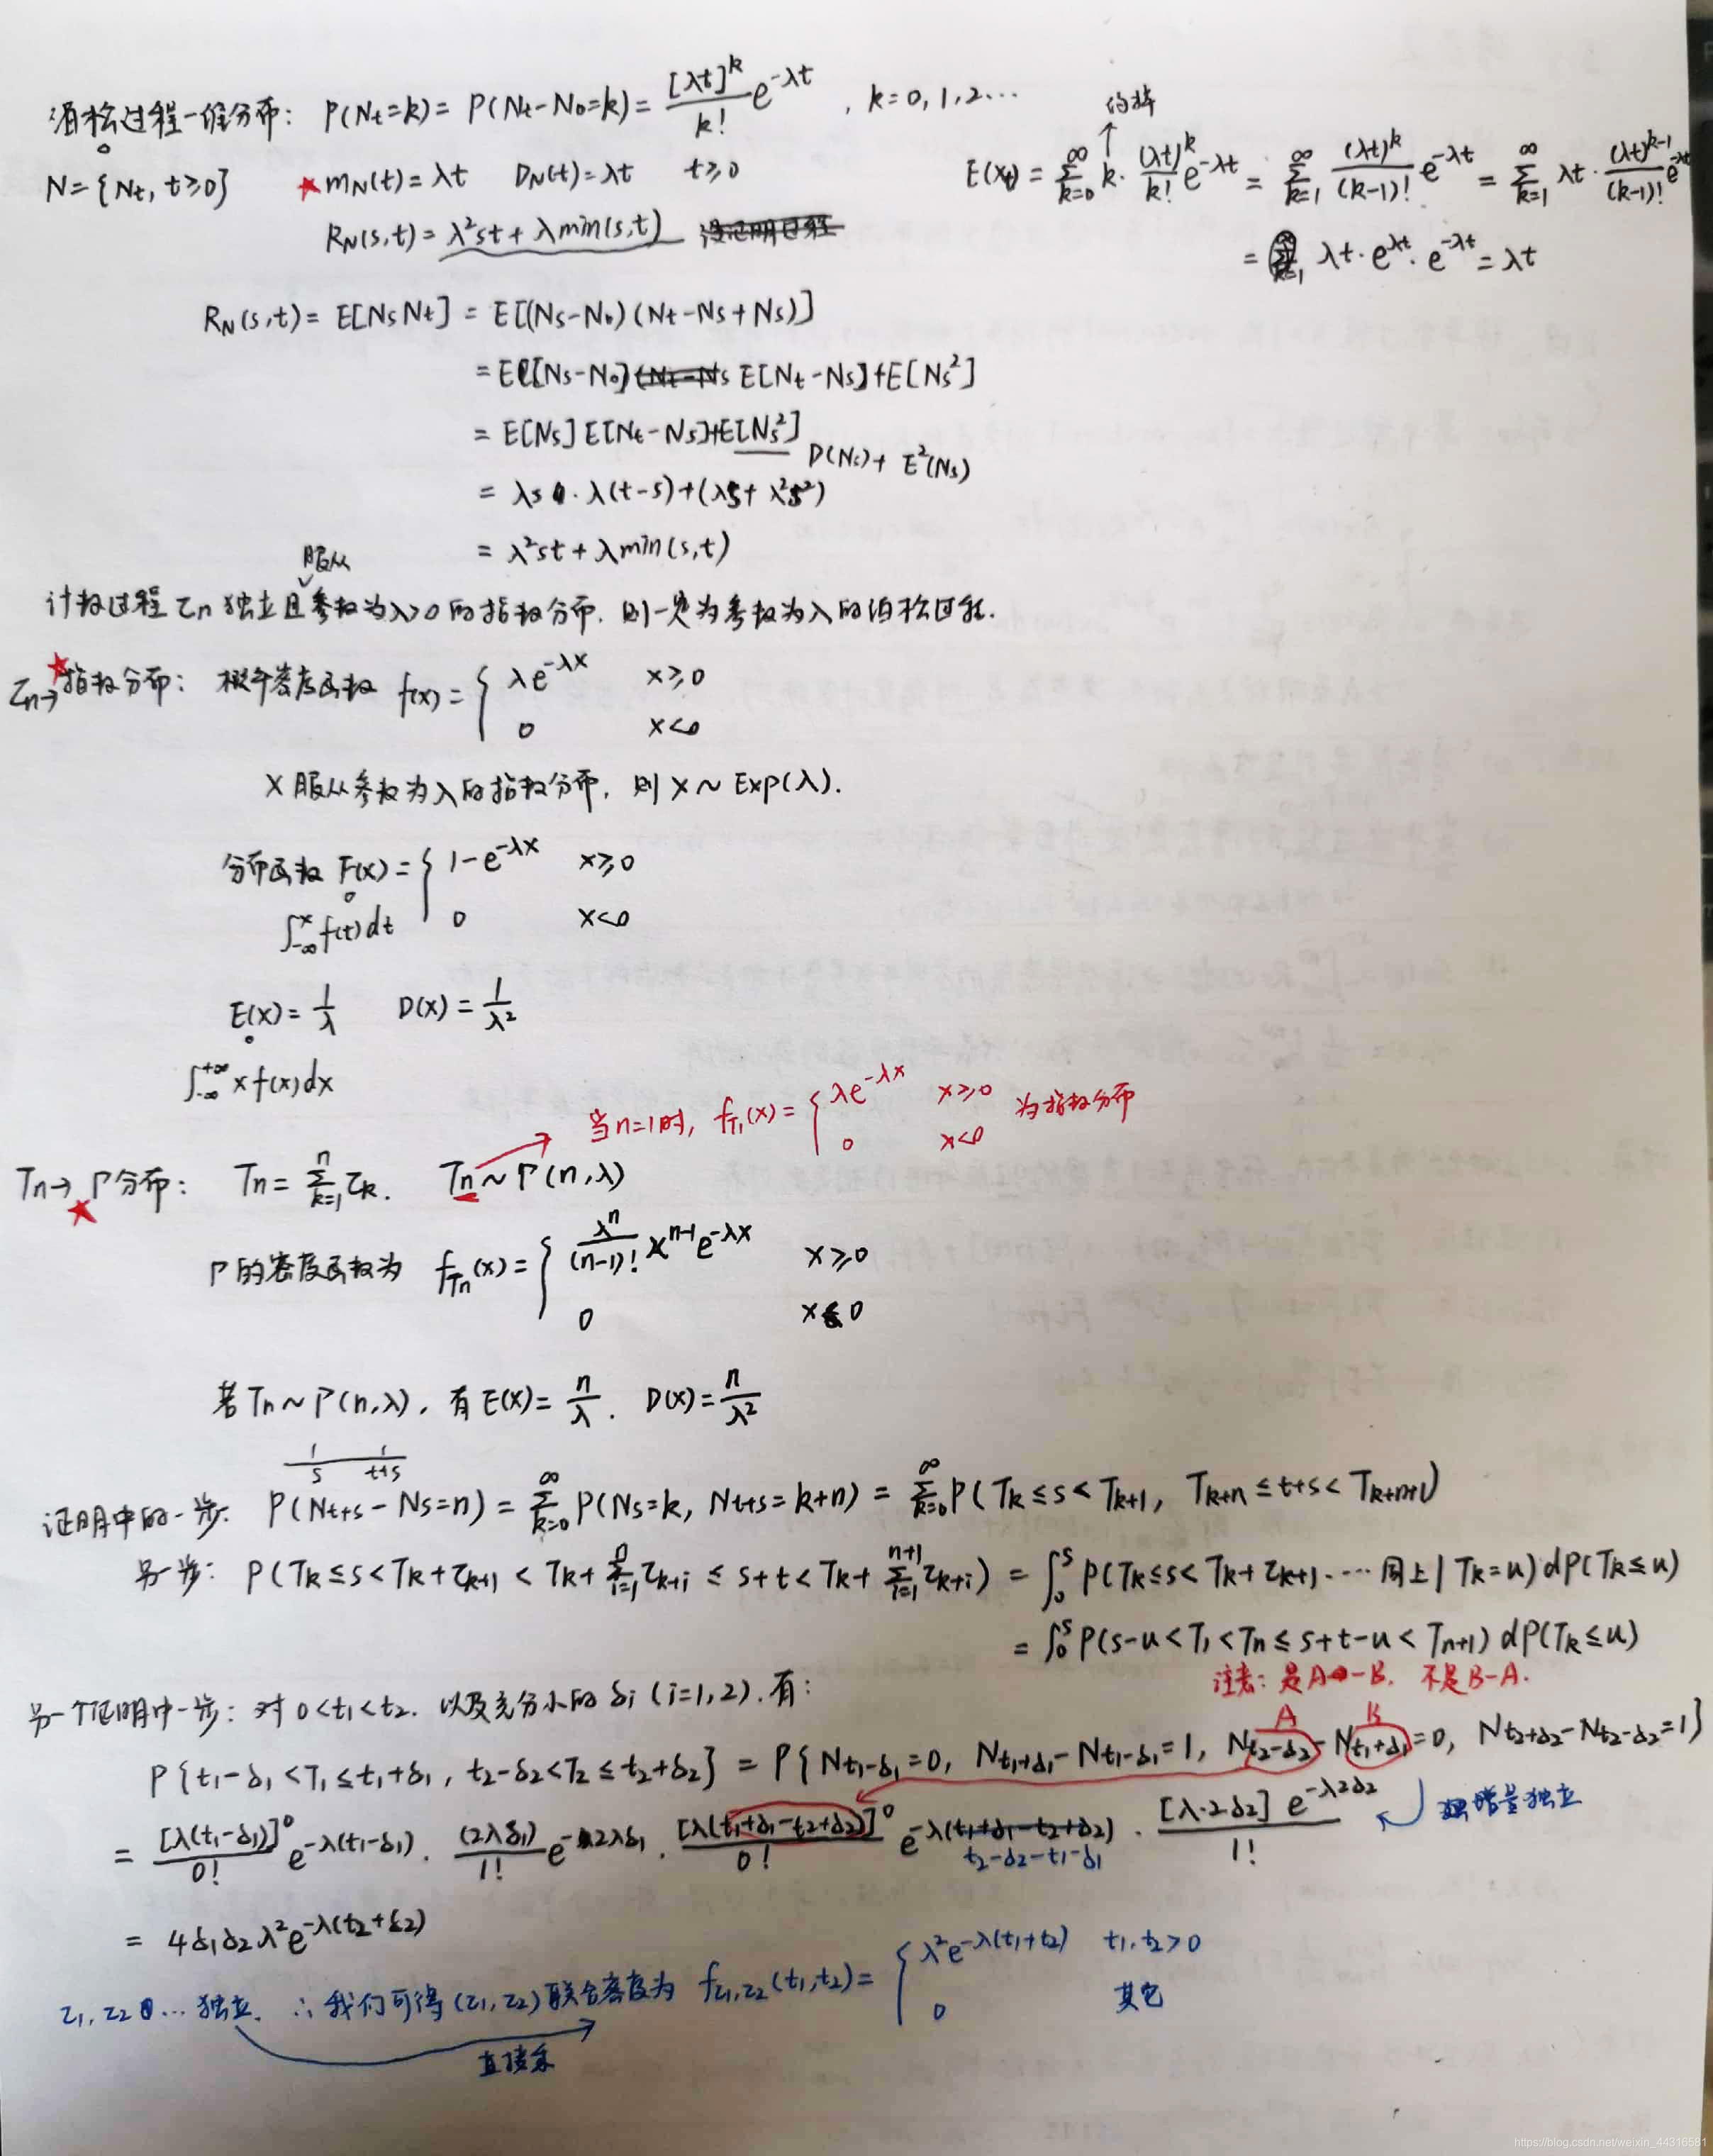 泊松过程一维分布: P(Nt=k)= P(Nt-N0=k)= [λt]^k/k! e^{-λt}, k=0,1,2…
N={Nt, t≥0} ★ mN(t)=λt DN(t)=λt t≥0
约掉
E(Xt) = Σ_{k=0}^{∞} k·(λt)^k/k! e^{-λt} = Σ_{k=1}^{∞} (λt)^k/(k-1)! e^{-λt} = Σ_{k=1}^{∞} λt·(λt)^{k-1}/(k-1)! e^{-λt}
= λt·e^{λt}·e^{-λt} = λt
RN(s,t)= λ²st+λmin(s,t)
RN(s,t)= E[NsNt] = E[(Ns-N0)(Nt-Ns+Ns)]
= E[Ns-N0] E[Nt-Ns]+E[Ns²]
= E[Ns]E[Nt-Ns]+E[Ns²]
D(Ns)+E²(Ns)
= λs·λ(t-s)+(λs+λ²s²)
= λ²st+λmin(s,t)
计数过程 τn 独立且服从参数为λ>0的指数分布, 则一定为参数为λ的泊松过程.
τn→★指数分布: 概率密度函数 f(x)= { λe^{-λx} x≥0
0 x<0
X服从参数为λ的指数分布, 则 X~Exp(λ).
分布函数 F(x)= { 1-e^{-λx} x≥0
0 x<0
∫_{-∞}^{x} f(t)dt
E(X)=1/λ D(X)=1/λ²
∫_{-∞}^{+∞} xf(x)dx
当n=1时, f_{T1}(x)= { λe^{-λx} x≥0 为指数分布
0 x<0
Tn→★Γ分布: Tn=Σ_{k=1}^{n} τk. Tn~Γ(n,λ)
Γ的密度函数为 f_{Tn}(x)= { λ^n/(n-1)! x^{n-1}e^{-λx} x≥0
0 x<0
若Tn~Γ(n,λ), 有E(X)=n/λ. D(X)=n/λ²
s t+s
证明中的一步: P(Nt+s-Ns=n) = Σ_{k=0}^{∞} P(Ns=k, Nt+s=k+n) = Σ_{k=0}^{∞} P(Tk≤s<Tk+1, Tk+n≤t+s<Tk+n+1)
另一步: P(Tk≤s<Tk+τk+1<Tk+Σ_{i=1}^{n}τk+i≤s+t<Tk+Σ_{i=1}^{n+1}τk+i) = ∫_0^s P(Tk≤s<Tk+τk+1…同上|Tk=u)dP(Tk≤u)
= ∫_0^s P(s-u<T1<Tn≤s+t-u<Tn+1)dP(Tk≤u)
注意: 是A-B, 不是B-A.
另一个证明中一步: 对0<t1<t2. 以及充分小的δi (i=1,2).有:
A B
P{t1-δ1<T1≤t1+δ1, t2-δ2<T2≤t2+δ2} = P{N_{t1-δ1}=0, N_{t1+δ1}-N_{t1-δ1}=1, N_{t2-δ2}-N_{t1+δ1}=0, N_{t2+δ2}-N_{t2-δ2}=1}
= [λ(t1-δ1)]^0/0! e^{-λ(t1-δ1)}·(2λδ1)/1! e^{-2λδ1}·[λ(t1+δ1-t2+δ2)]^0/0! e^{-λ(t1+δ1-t2+δ2)}·[λ·2δ2]e^{-λ2δ2}/1!
t2-δ2-t1-δ1
增量独立
= 4δ1δ2λ²e^{-λ(t2+δ2)}
τ1,τ2…独立. ∴我们可得(τ1,τ2)联合密度为 f_{τ1,τ2}(t1,t2)= { λ²e^{-λ(t1+t2)} t1,t2>0
0 其它
直接乘
https://blog.csdn.net/weixin_44316581